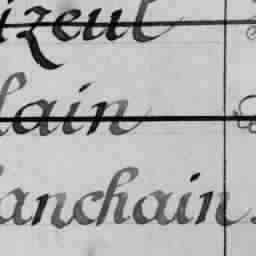 izeul
lain
anchain.